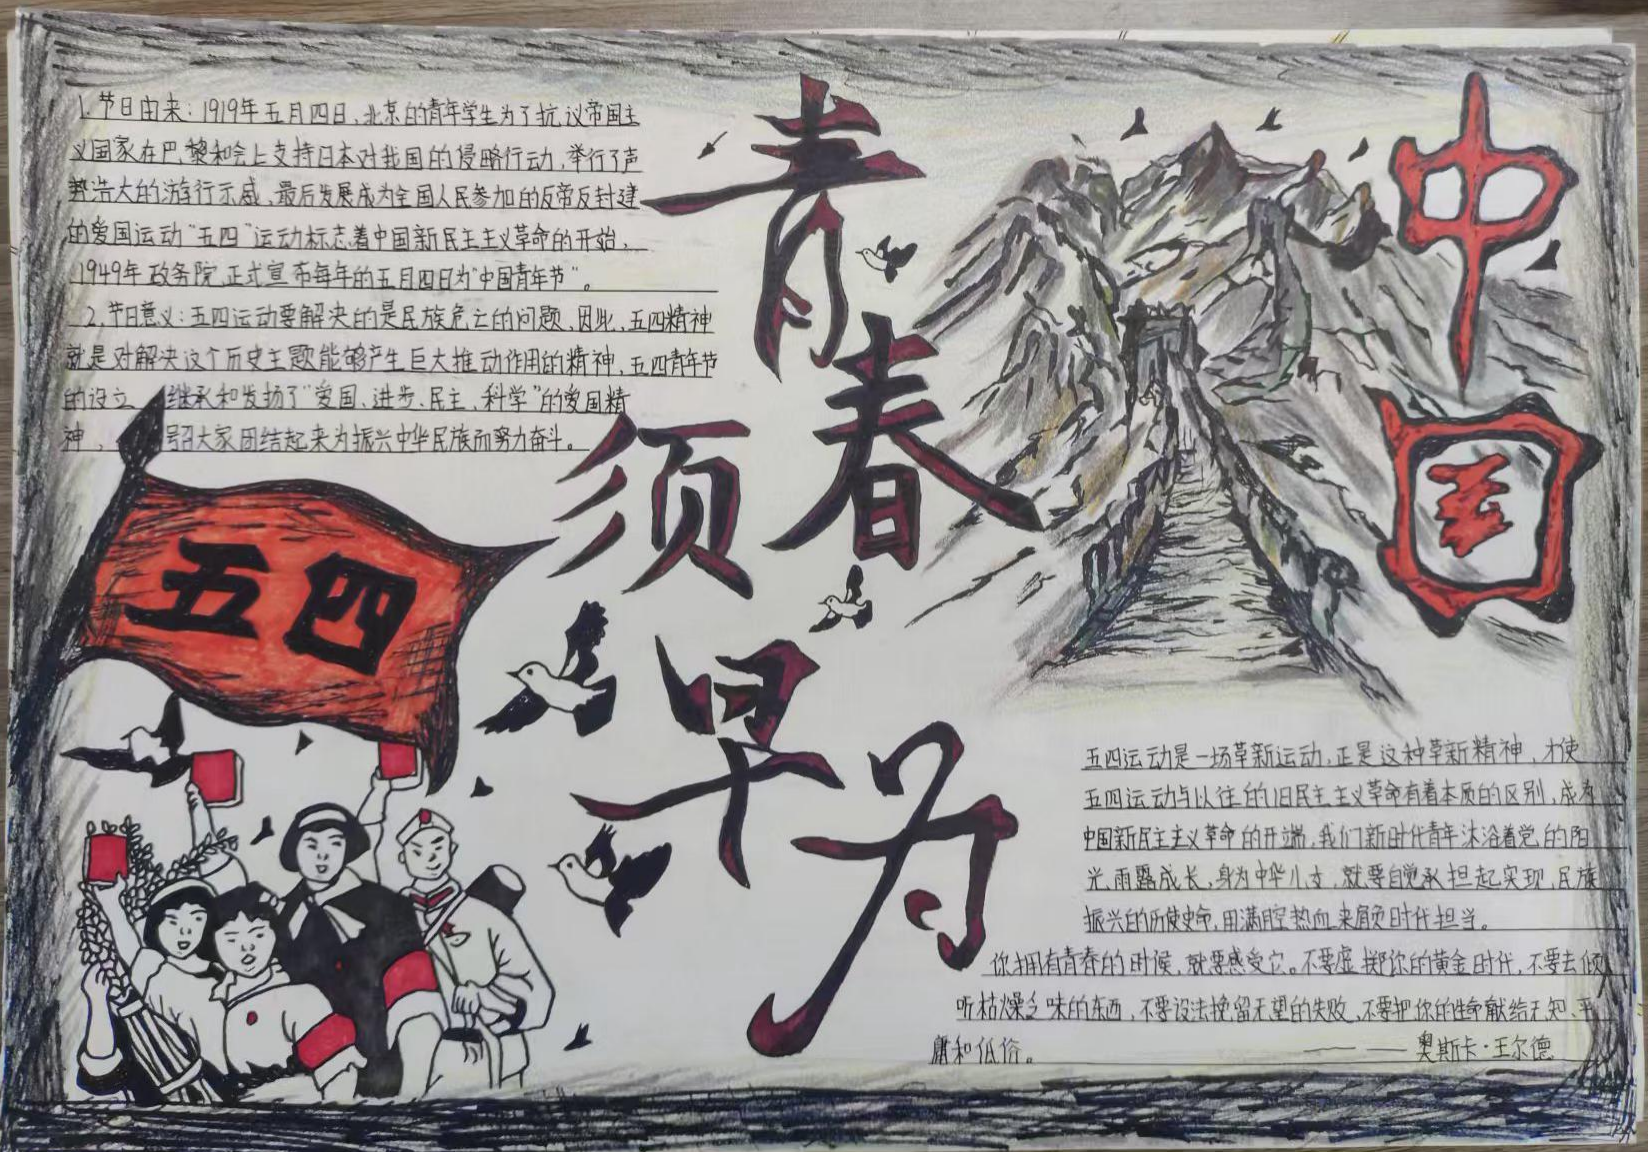 1.节日由来：1919年五月四日，北京的青年学生为了抗议帝国主
义国家在巴黎和会上支持日本对我国的侵略行动，举行了声
势浩大的游行示威，最后发展成为全国人民参加的反帝反封建
的爱国运动“五四”运动标志着中国新民主主义革命的开始，
1949年政务院正式宣布每年的五月四日为“中国青年节”。
2.节日意义：五四运动要解决的是民族危亡的问题，因此，五四精神
就是对解决这个历史主题能够产生巨大推动作用的精神，五四青年节
的设立 继承和发扬了“爱国、进步、民主、科学”的爱国精
神， 号召大家团结起来为振兴中华民族而努力奋斗。
青春
须早为
中国
五四
五四运动是一场革新运动，正是这种革新精神，才使
五四运动与以往的旧民主主义革命有着本质的区别，成为
中国新民主主义革命的开端，我们新时代青年沐浴着党的阳
光、雨露成长，身为中华儿女，就要自觉承担起实现民族
振兴的历使史命，用满腔热血来肩负时代担当。
你拥有青春的时候，就要感受它。不要虚掷你的黄金时代，不要去倾
听枯燥乏味的东西，不要设法挽留无望的失败，不要把你的生命献给无知、平
庸和低俗。
——奥斯卡·王尔德